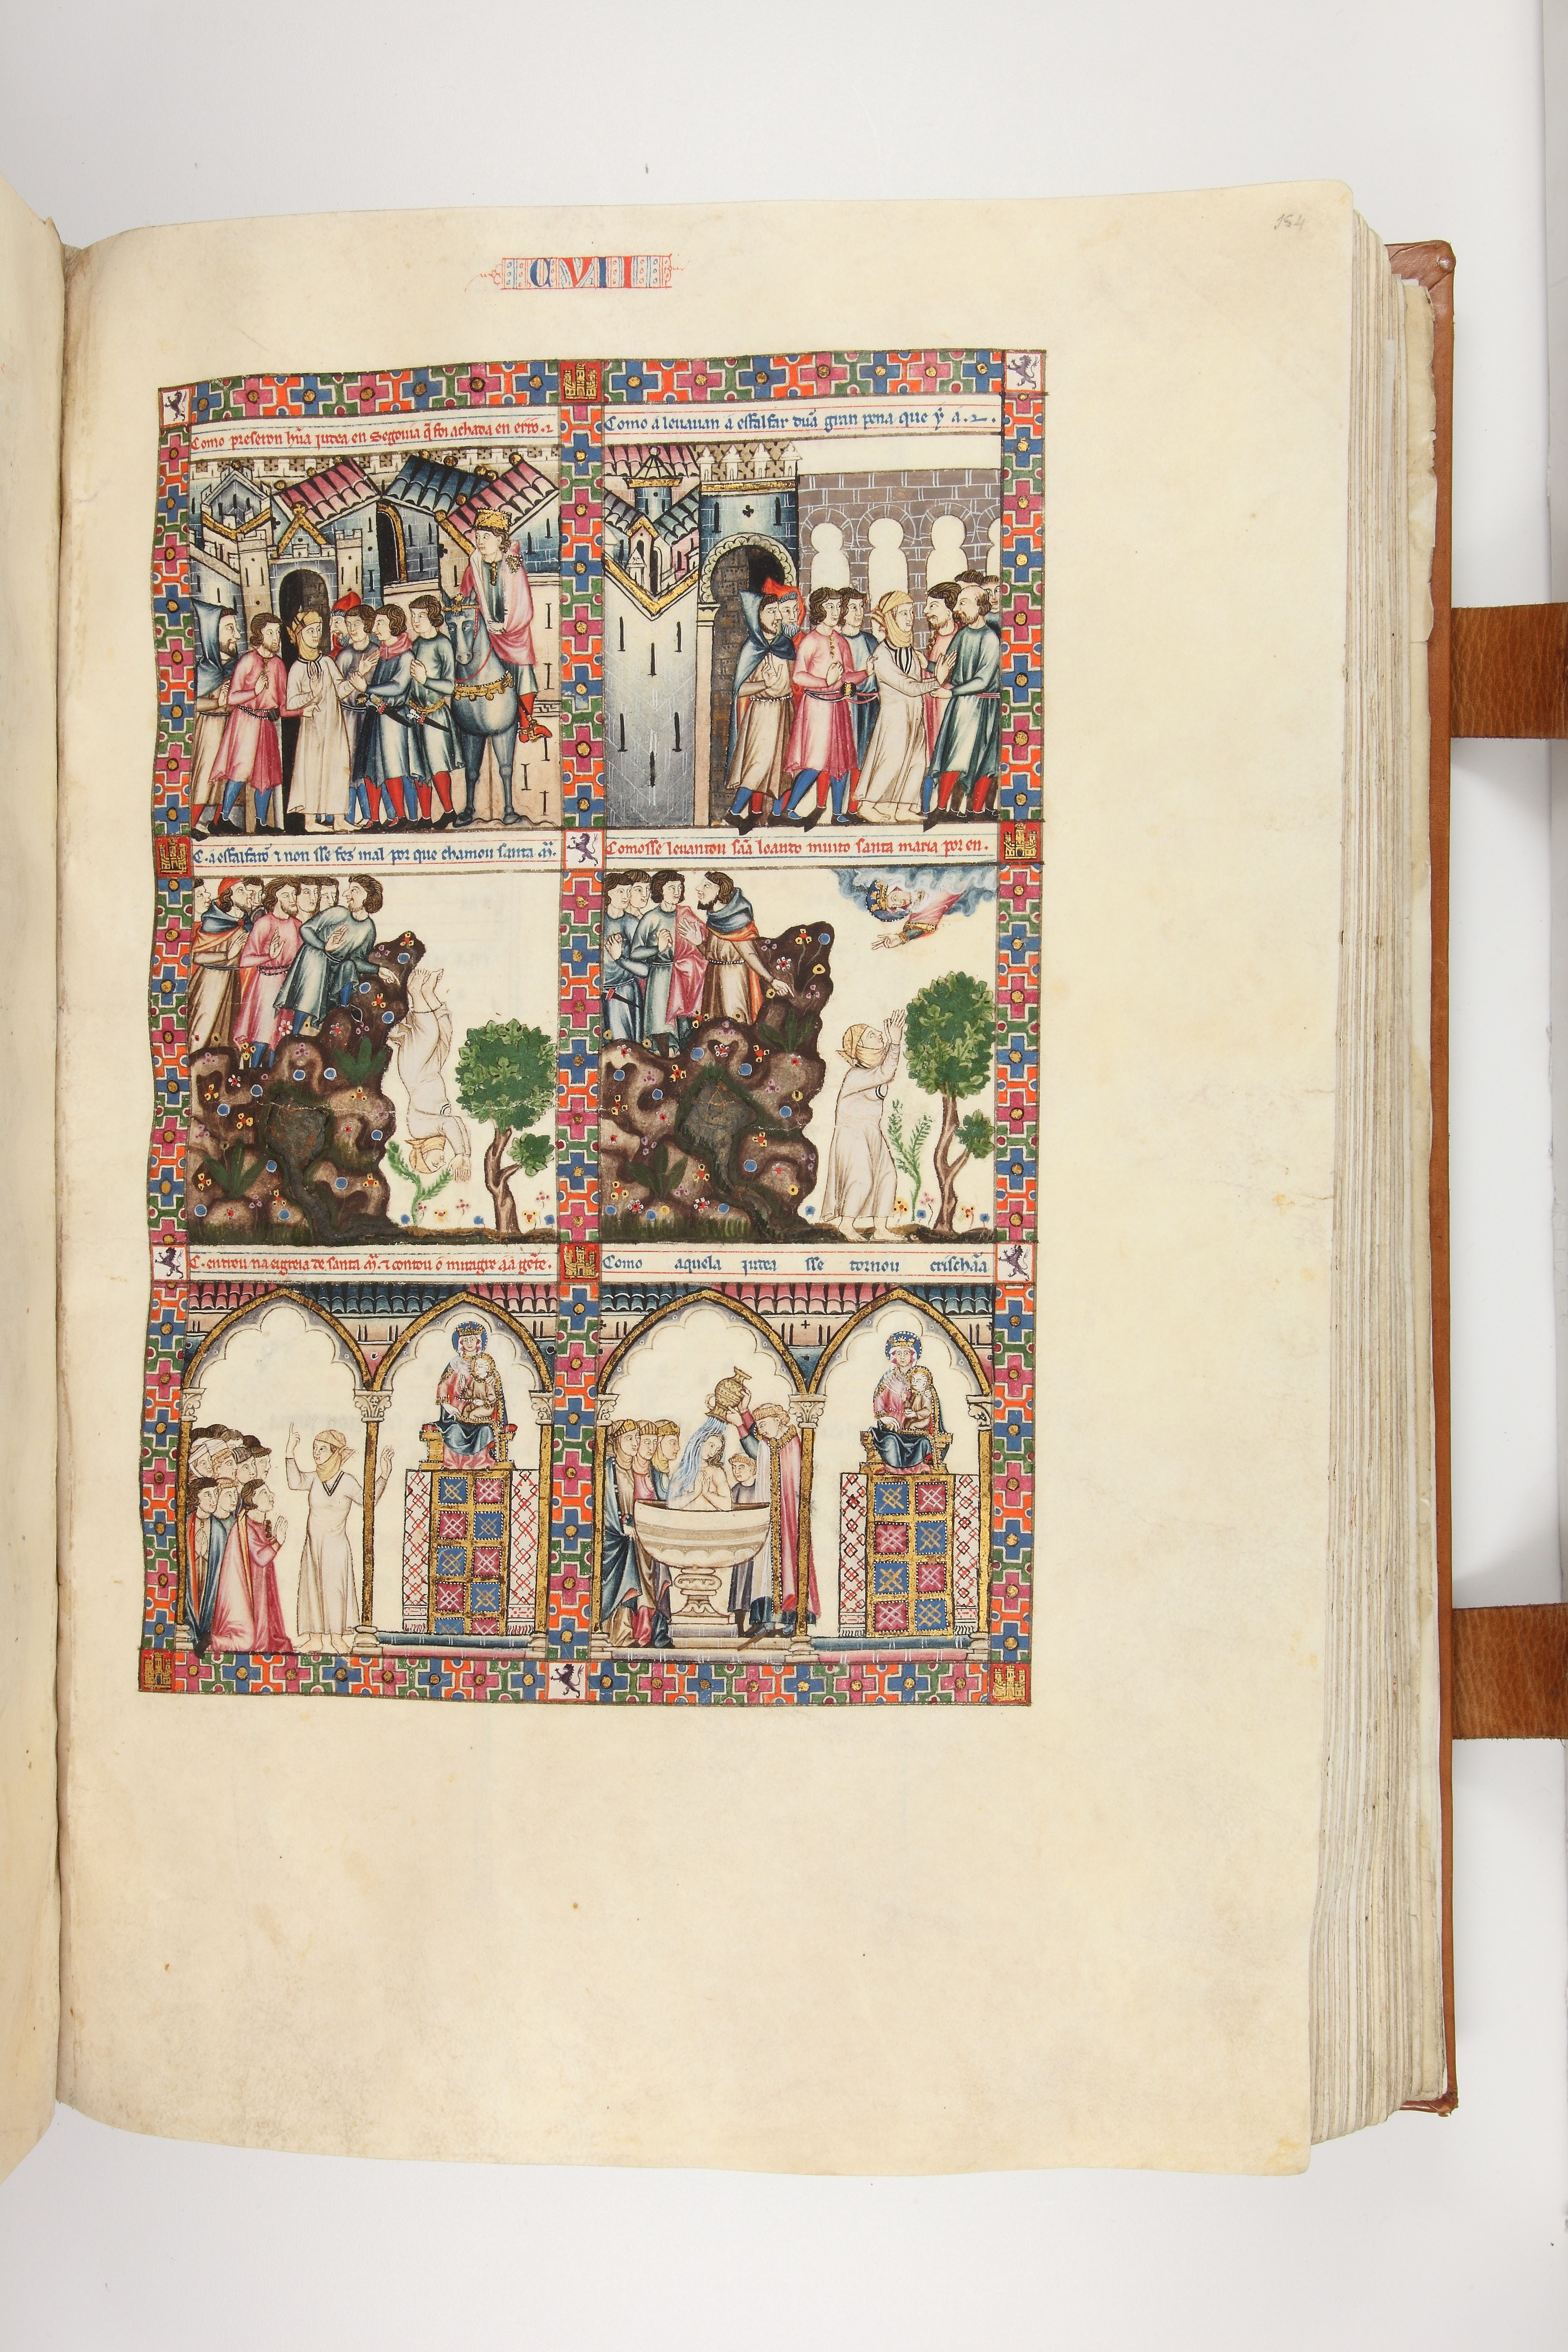 154
CVII
Como preseron hũa iudea en Segouia q̃ foi achada en erro.
Como a leuauan a esfalfar dũa gran pena que ẏ a.
C. a esfalfarõ ⁊ non sse fez mal por que chamou santa mª.
Comosse leuantou sãa loando muito santa maria por en.
C. entrou na eigreia de santa mª. ⁊ contou o miragre aa gẽte.
Como aquela iudea sse tornou crischãa